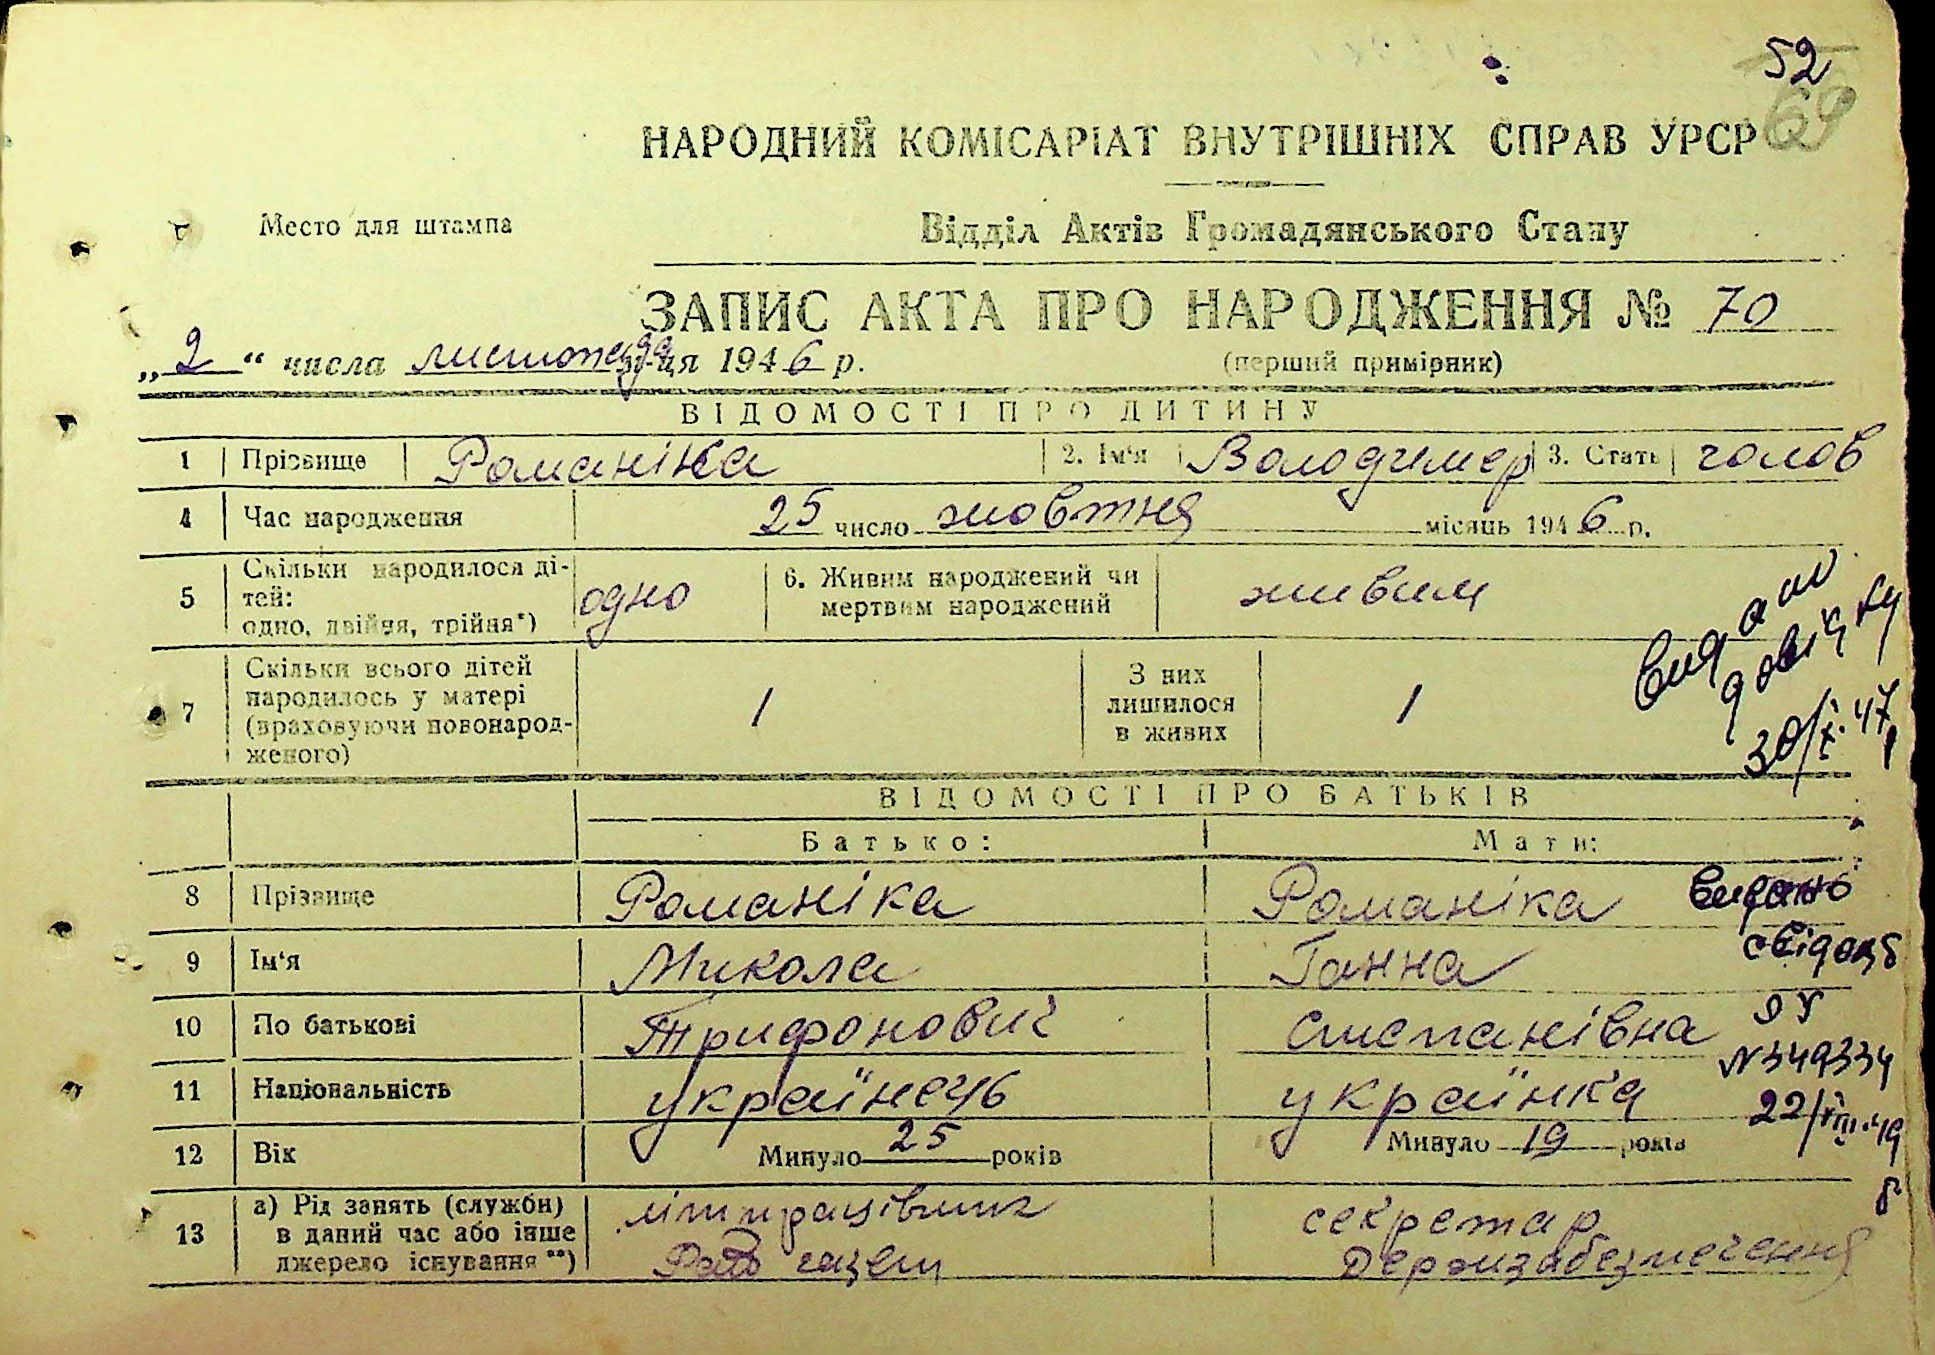 52
69
НАРОДНИЙ КОМІСАРІАТ ВНУТРІШНІХ СПРАВ УРСР
Место для штампа
Відділ Актів Громадянського Стану
ЗАПИС АКТА ПРО НАРОДЖЕННЯ № 70
„2“ числа листопада м-ця 1946 р.
(перший примірник)
ВІДОМОСТІ ПРО ДИТИНУ
1 Прізвище Романіка 2. Ім'я Володимер 3. Стать чолов
4 Час народження 25 число жовтня місяць 1946 р.
5 Скільки народилося ді-
тей:
одно, двійня, трійня*) одно
6. Живим народжений чи
мертвим народжений живим
7 Скільки всього дітей
народилось у матері
(враховуючи новонарод-
женого) 1
З них
лишилося
в живих 1
видано
довідку
30/X.47
ВІДОМОСТІ ПРО БАТЬКІВ
Батько: Мати:
8 Прізвище Романіка Романіка
9 Ім'я Микола Ганна
10 По батькові Трифонович Степанівна
11 Національність українець українка
12 Вік Минуло 25 років Минуло 19 років
13 а) Рід занять (служби)
в даний час або інше
джерело існування **)
літпрацівник
газет
секретар
Держзабезпечення
видано
свідоцб
ЯУ
N349334
22/VIII.49